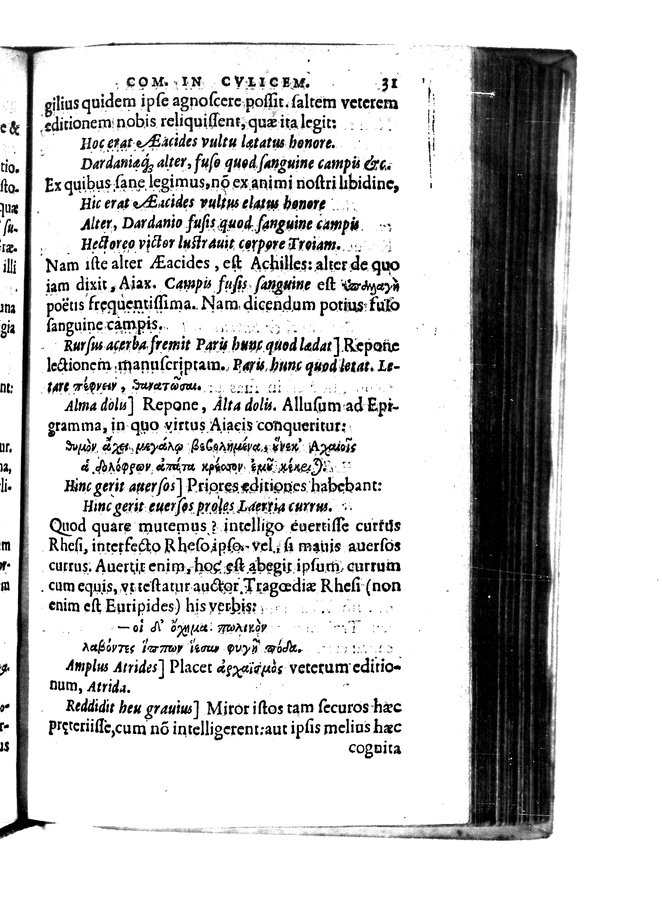 COM. IN CVLICEM. 31
gilius quidem ipse agnoscere possit. saltem veterem
editionem nobis reliquissent, quæ ita legit:
Hoc erat Æacides vultu lætatus honore.
Dardaniæq́; alter, fuso quod sanguine campis &c.
Ex quibus sane legimus, nō ex animi nostri libidine,
Hic erat Æacides vultus elatus honore
Alter, Dardanio fusis quod sanguine campis
Hectoreo victor lustrauit corpore Troiam.
Nam iste alter Æacides, est Achilles: alter de quo
iam dixit, Aiax. Campis fusis sanguine est ὑπαλλαγὴ
poëtis frequentissima. Nam dicendum potius fuso
sanguine campis.
Rursus acerba fremit Paris hunc quod lædat] Repone
lectionem manuscriptam. Paris hunc quod letat. Le-
tare πέφνειν, θανατῶσαι.
Alma dolis] Repone, Alta dolis. Allusum ad Epi-
gramma, in quo virtus Aiacis conqueritur:
θυμὸν ἄχει μεγάλῳ βεβολημένα, οὕνεκ' Ἀχαιοῖς
ἁ δολόφρων ἀπάτα κρέσσον ἐμοῦ κέκριται.
Hinc gerit auersos] Priores editiones habebant:
Hinc gerit euersos proles Laertia currus.
Quod quare mutemus? intelligo euertisse currus
Rhesi, interfecto Rheso ipso. vel, si mauis auersos
currus. Auertit enim, hoc est abegit ipsum currum
cum equis, vt testatur auctor Tragœdiæ Rhesi (non
enim est Euripides) his verbis:
— οἱ δ' ὄχημα πωλικὸν
λαβόντες ἵππων ἵεσαν φυγῇ πόδα.
Amplus Atrides] Placet ἀρχαϊσμὸς veterum editio-
num, Atrida.
Reddidit heu grauius] Miror istos tam securos hæc
pręteriisse, cum nō intelligerent: aut ipsis melius hæc
cognita